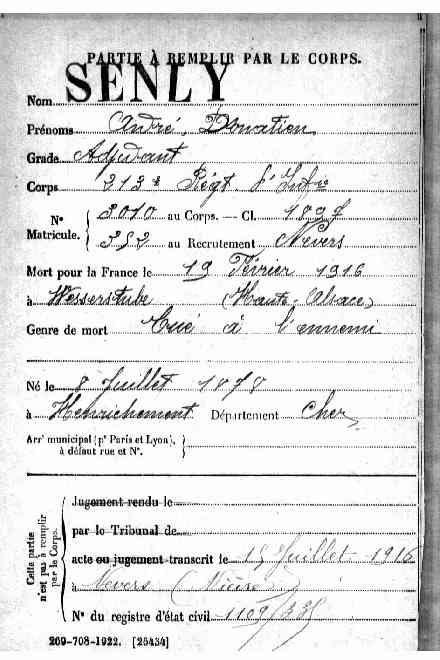 PARTIE À REMPLIR PAR LE CORPS.
Nom SENLY
Prénoms André, Donatien
Grade Adjudant
Corps 213e Régt d'Infie
N° Matricule. { 3010 au Corps. — Cl. 1897
352 au Recrutement Nevers
Mort pour la France le 19 Février 1916
à Wesserstube (Haute-Alsace)
Genre de mort Tué à l'ennemi
Né le 8 Juillet 1878
à Henrichement Département Cher
Arrt municipal (pr Paris et Lyon), à défaut rue et N°.
Cette partie n'est pas à remplir par le Corps.
Jugement rendu le
par le Tribunal de
acte ou jugement transcrit le 15 Juillet 1916
à Nevers (Nièvre)
N° du registre d'état civil 1109/
269-708-1922. [25434]